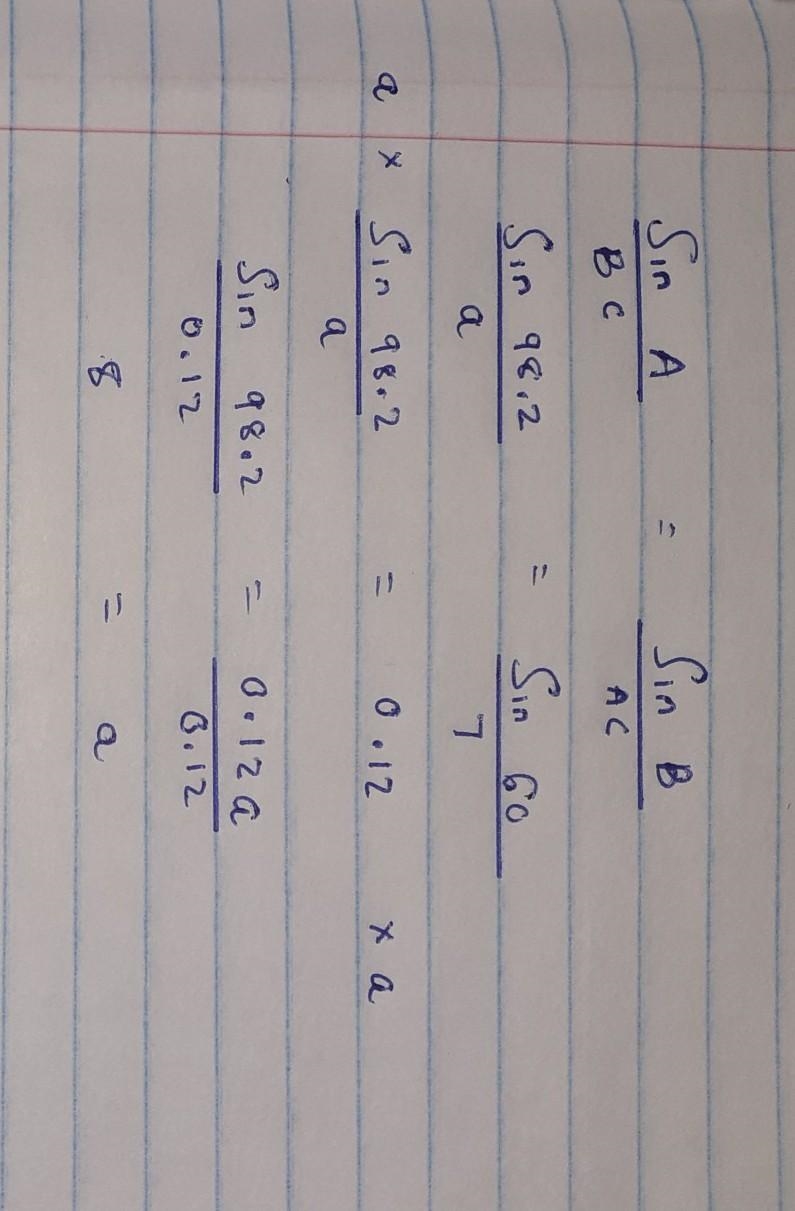 Sin A / BC = Sin B / AC
Sin 98.2 / a = Sin 60 / 7
a × Sin 98.2 / a = 0.12 × a
Sin 98.2 / 0.12 = 0.12 a / 0.12
8 = a